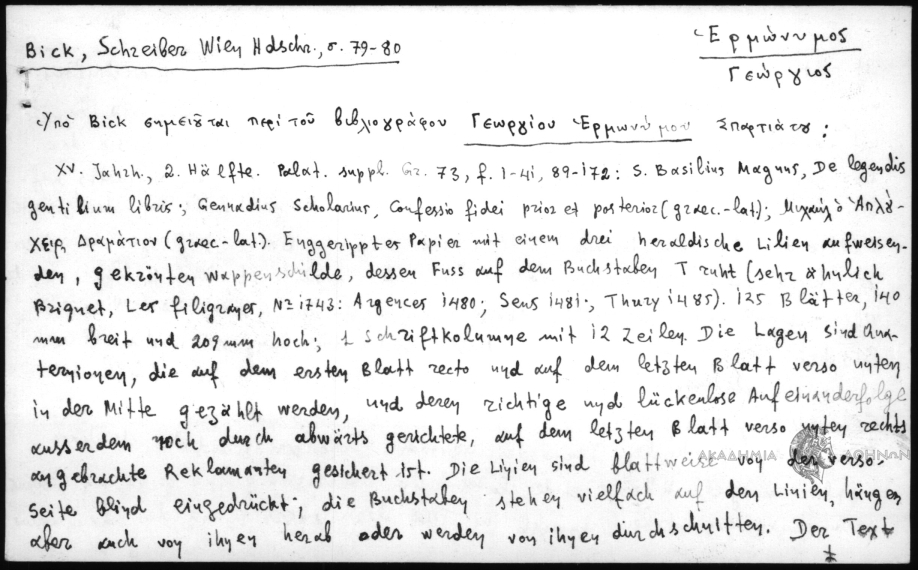 Bick, Schreiber Wien Hdschr., σ. 79-80
Ἑρμώνυμος
Γεώργιος
Ὑπὸ Bick σημειοῦται περὶ τοῦ βιβλιογράφου Γεωργίου Ἑρμωνύμου Σπαρτιάτου:
XV. Jahrh., 2. Hälfte. Palat. suppl. Gr. 73, f. 1-41, 89-172: S. Basilius Magnus, De legendis
gentilium libris; Gennadius Scholarius, Confessio fidei prior et posterior (graec.-lat); Μιχαὴλ ὁ Ἀπλύ-
χειρ, Δραμάτιον (graec-lat.). Enggeripptes Papier mit einem drei heraldische Lilien aufweisen-
den, gekrönten Wappenschilde, dessen Fuss auf dem Buchstaben T ruht (sehr ähnlich
Briquet, Les filigranes, No 1743: Argences 1480; Sens 1481; Thury 1485). 125 Blätter, 140
mm breit und 209 mm hoch; 1 Schriftkolumne mit 12 Zeilen. Die Lagen sind Qua-
ternionen, die auf dem ersten Blatt recto und auf dem letzten Blatt verso unten
in der Mitte gezählt werden, und deren richtige und lückenlose Aufeinanderfolge
ausserdem noch durch abwärts gerichtete, auf dem letzten Blatt verso unten rechts
angebrachte Reklamanten gesichert ist. Die Linien sind blattweise von der verso-
ΑΚΑΔΗΜΙΑ ΑΘΗΝΩΝ
seite blind eingedrückt; die Buchstaben stehen vielfach auf den Linien, hängen
aber auch von ihnen herab oder werden von ihnen durchschnitten. Der Text